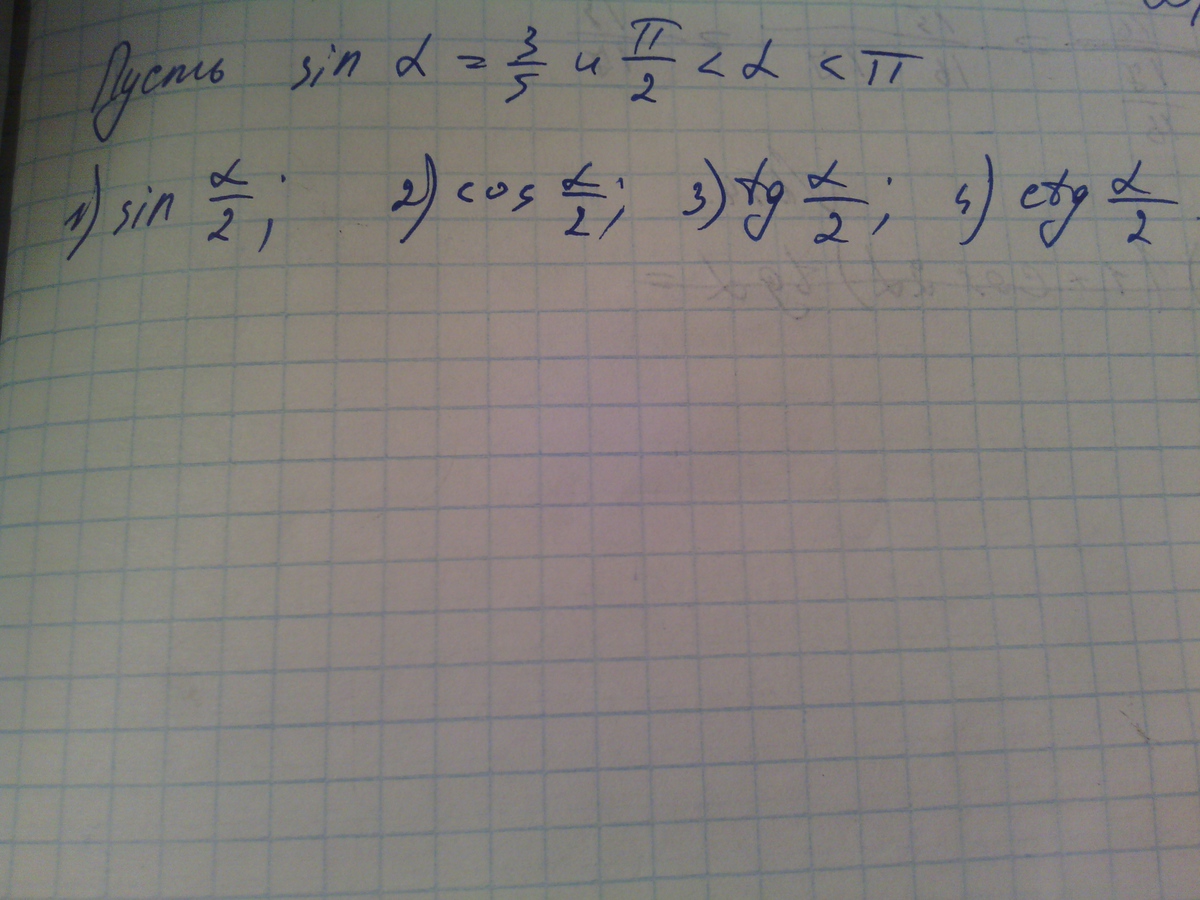 Пусть sin α = 3/5 и π/2 < α < π
1) sin α/2; 2) cos α/2; 3) tg α/2; 4) ctg α/2.